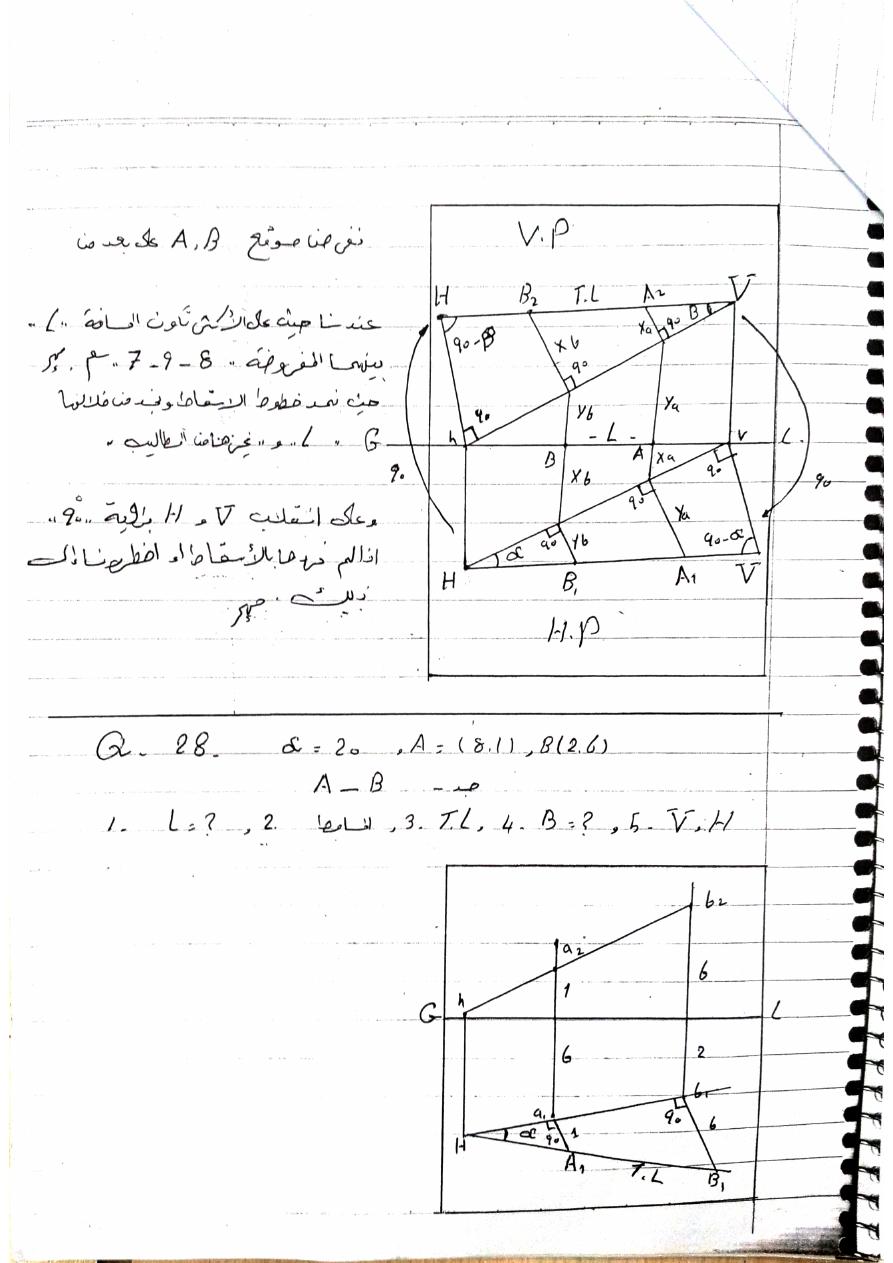 نفرضنا موقع A,B على بعد من
عندنا حيث على الأكثر تكون المسافة "L"
بينهما المفروضة "8-9-7" م.
حيث نمد خطوط الاسقاط ونجد من خلالها
"L" و
وعلى انقلاب V و H بزاوية "90°"
اذا لم نجدها بالأسقاط او اضطررنا الى
ذلك.
V.P
H B2 T.L A2 V
90-B Xb Xa 90 B
90
90 Yb Ya
G h B -L- A v L
90 Xb Xa 90 90
90 Ya
∝ 90 Yb 90-∝
H B1 A1 V
H.P
Q. 28. ∝=20 , A=(8.1) , B(2.6)
A — B جد -
1. L=? , 2. , 3. T.L , 4. B=? , 5. V,H
b2
a2
h 1 6
G L
6 2
a1 b1
∝ 90 1 90 6
H A1 T.L B1